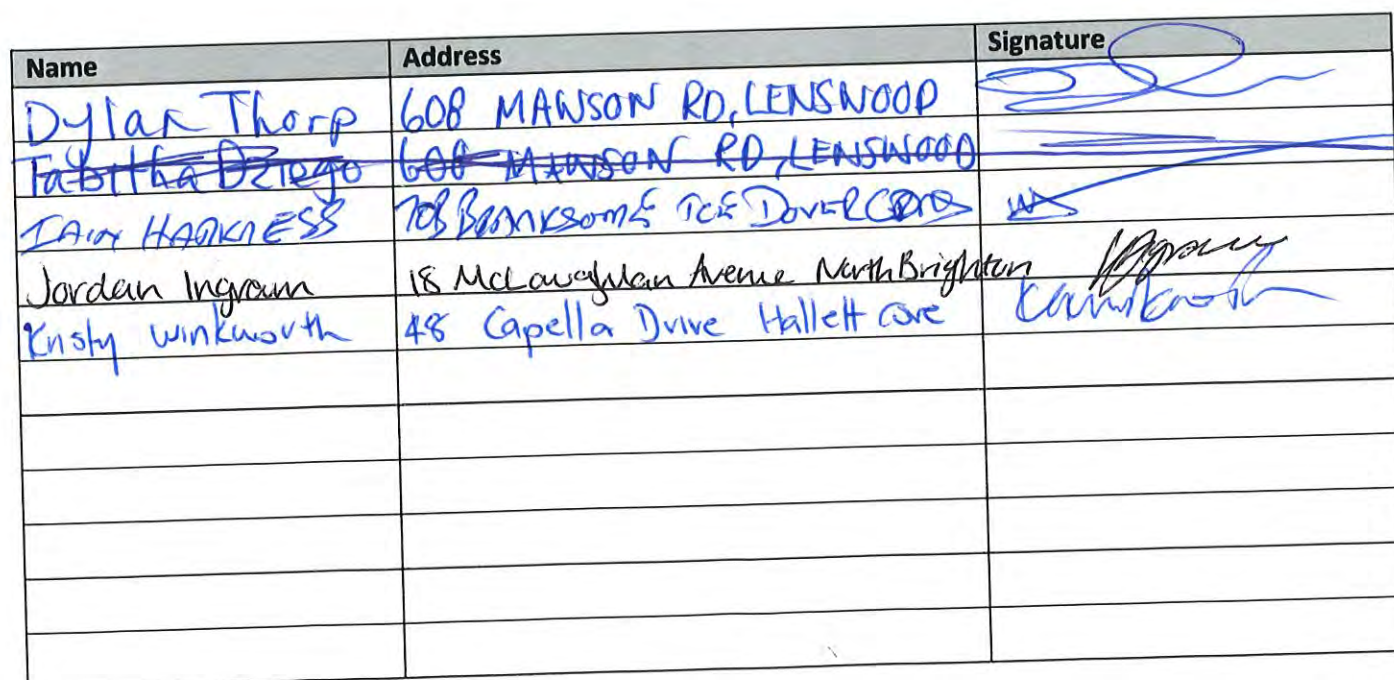 Name Address Signature
Dylan Thorp 608 MAWSON RD, LENSWOOD
Tabitha Dziego 608 MAWSON RD, LENSWOOD
IAIN HARKNESS 70B BRANKSOME TCE DOVER GDNS
Jordan Ingram 18 McLaughlan Avenue North Brighton
Kristy Winkworth 48 Capella Drive Hallett Cove